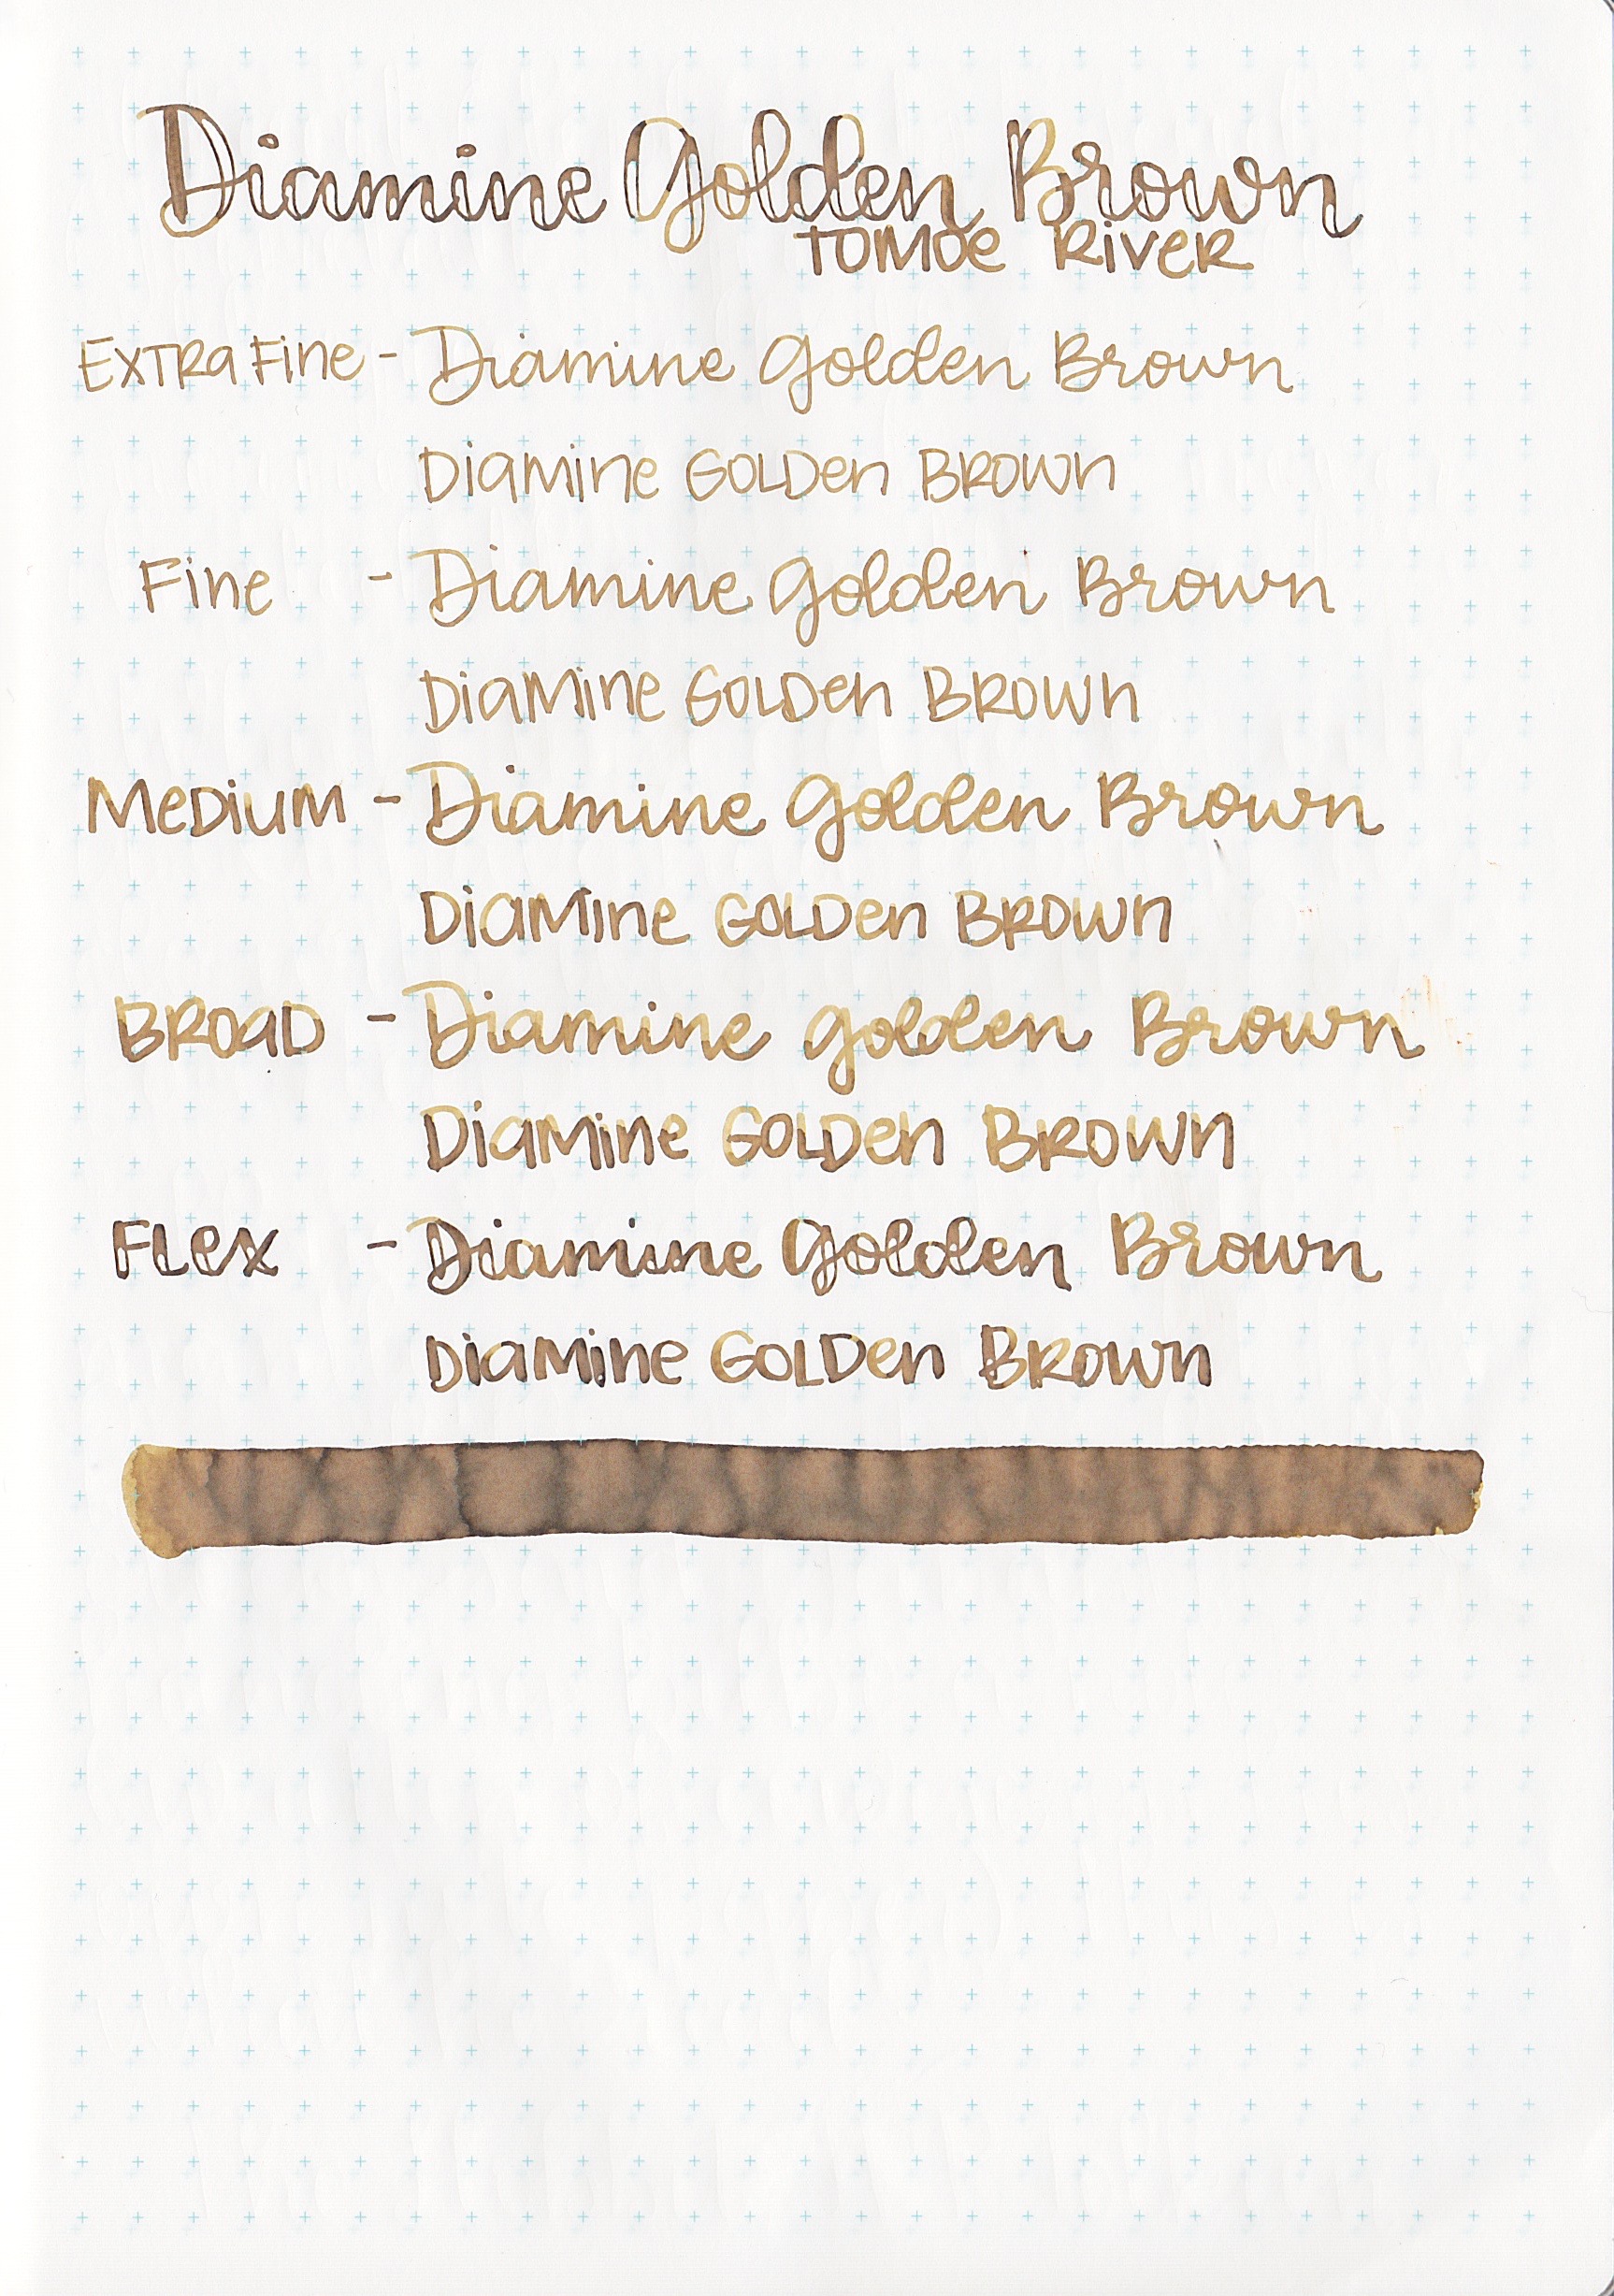 Diamine Golden Brown
Tomoe River
Extra Fine - Diamine Golden Brown
Diamine Golden Brown
Fine - Diamine Golden Brown
Diamine Golden Brown
Medium - Diamine Golden Brown
Diamine Golden Brown
Broad - Diamine Golden Brown
Diamine Golden Brown
Flex - Diamine Golden Brown
Diamine Golden Brown